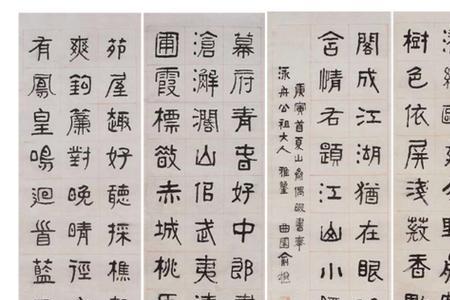 樹色依屏淺蔬香
閣成江湖猶在眼
含情右題江山小
庚寅首夏山
泳舟公祖大人 雅鑒 曲園俞樾
幕府青春好中郎
滄澥濶山侶武夷清
圃霞標欲赤城桃
茆屋趣好聽採樵
爽鉤簾對晚晴徑
有鳳皇鳴迴首藍